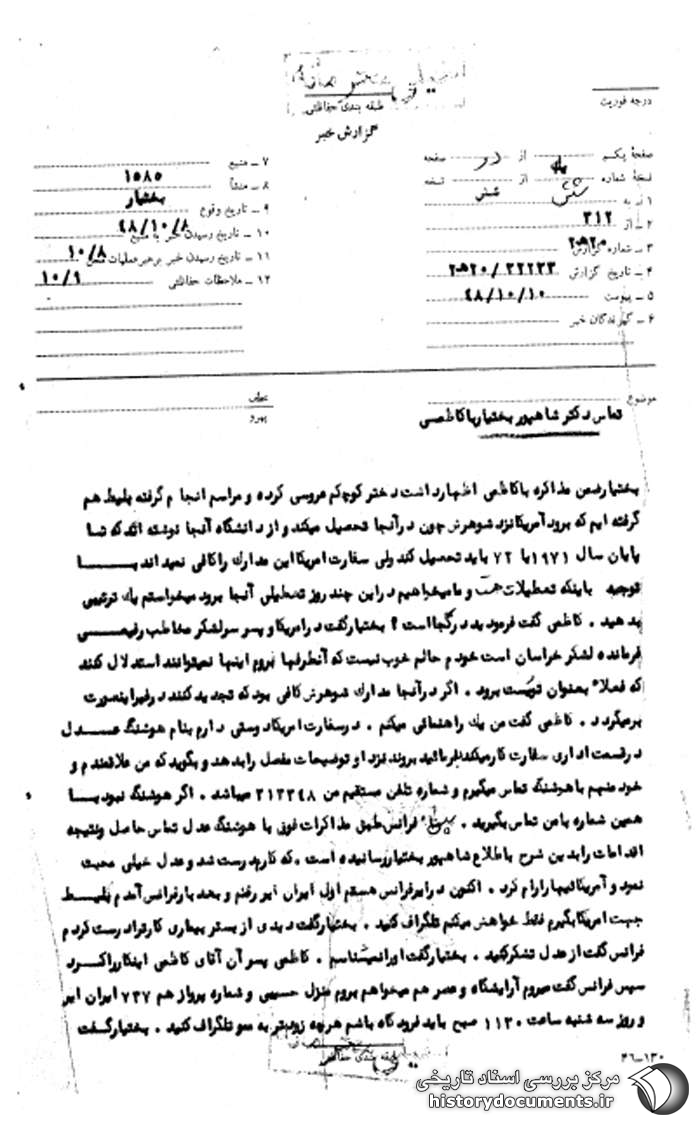 خیلی محرمانه
طبقه بندی حفاظتی
گزارش خبر
درجه فوریت
صفحهٔ یکم از دو صفحه
نسخهٔ شماره از شش نسخه
۱ – به
۲ – از ۳۱۲
۳ – شماره گزارش
۴ – تاریخ گزارش ۲۰ه۲۰/۲۲۲۳۳
۵ – پیوست ۴۸/۱۰/۱۰
۶ – گیرندگان خبر
۷ – منبع ۱۵۸۵
۸ – منشأ بختیار
۹ – تاریخ وقوع ۴۸/۱۰/۸
۱۰ – تاریخ رسیدن خبر به منبع
۱۱ – تاریخ رسیدن خبر برهبر عملیات ۱۰/۸
۱۲ – ملاحظات حفاظتی ۱۰/۹
موضوع
عطف
پیرو
تماس دکتر شاهپور بختیار با کاظمی
بختیار ضمن مذاکره با کاظمی اظهار داشت دختر کوچکم عروسی کرده و مراسم انجام گرفته بلیط هم
گرفته ایم که برود آمریکا نزد شوهرش چون در آنجا تحصیل میکند و از دانشگاه آنجا نوشته اند که تا
پایان سال ۱۹۷۱ یا ۷۲ باید تحصیل کند ولی سفارت امریکا این مدارک را کافی نمیداند با
توجیه باینکه تعطیلات است و ما میخواهیم در این چند روز تعطیلی آنجا برود میخواستم یک ترتیبی
بدهید . کاظمی گفت فرمودید در کجا است ؟ بختیار گفت در امریکا و پسر سرلشکر مخاطب رفیعی
فرمانده لشکر خراسان است خودم حالم خوب نیست که آنطرفها بروم اینها نمیتوانند استدلال کنند
که فعلاً بعنوان توریست برود . اگر در آنجا مدارک شوهرش کافی بود که تجدید کنند در غیر اینصورت
برمیگردد . کاظمی گفت من یک راهنمائی میکنم . در سفارت امریکا دوستی دارم بنام هوشنگ عدل
در قسمت اداری سفارت کار میکند بفرمائید بروند نزد او توضیحات مفصل را بدهد و بگوید که من علاقمندم و
خود منهم با هوشنگ تماس میگیرم و شماره تلفن مستقیم من ۳۱۳۳۴۸ میباشد . اگر هوشنگ نبود با
همین شماره با من تماس بگیرید . فرانس طبق مذاکرات فوق با هوشنگ عدل تماس حاصل و نتیجه
اقدامات را بدین شرح باطلاع شاهپور بختیار رسانیده است . که کار درست شد و عدل خیلی محبت
نمود و آمریکائیها را رام کرد . اکنون در ایرفرانس هستم اول ایران ایر رفتم و بعد بار فرانس آمدم بلیط
جهت امریکا بگیرم فقط خواهش میکنم تلگراف کنید . بختیار گفت دیدی از بستر بیماری کارترا درست کردم
فرانس گفت از عدل تشکر کنید . بختیار گفت او را نمیشناسم . کاظمی پسر آن آقای کاظمی اینکار را کرد
سپس فرانس گفت میروم آرایشگاه و عصر هم میخواهم بروم منزل حسیبی و شماره پرواز هم ۷۳۷ ایران ایر
و روز سه شنبه ساعت ۱۱۳۰ صبح باید فرودگاه باشم هرچه زودتر به عمو تلگراف کنید . بختیار گفت
طبقه بندی حفاظتی
۴۶–۱۳۰
مرکز بررسی اسناد تاریخی
historydocuments.ir